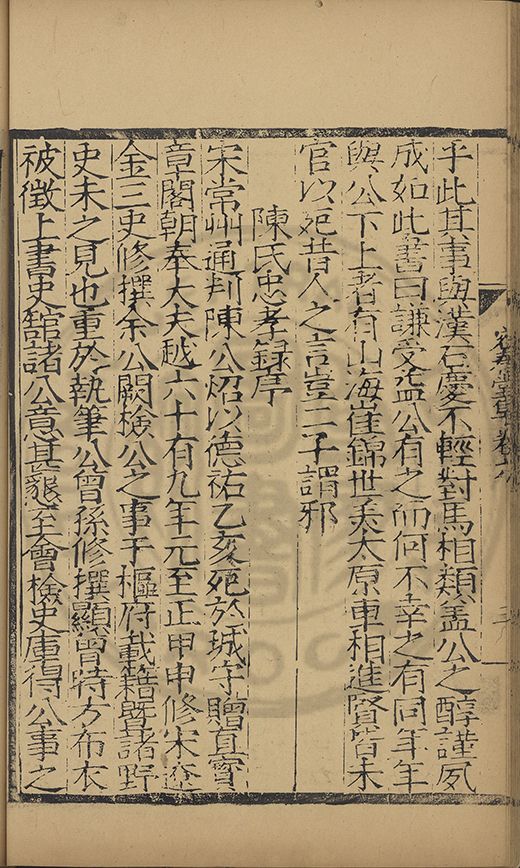 乎此其事與漢石慶不輕對馬相類盖公之醇謹夙
成如此書曰謙受益公有之而何不幸之有同年年
與公下上者有山海崔錦世美太原車相進賢皆未
官以死昔人之言豈二子謂邪
陳氏忠孝録序
宋常州通判陳公炤以德祐乙亥死於城守贈直寳
章閣朝奉大夫越六十有九年元至正甲申修宋遼
金三史修撰余公闕檢公之事于樞府載籍暨諸野
史未之見也重於執筆公曾孫修撰顯曾時方布衣
被徵上書史館諸公意甚懇至會檢史庫得公事之